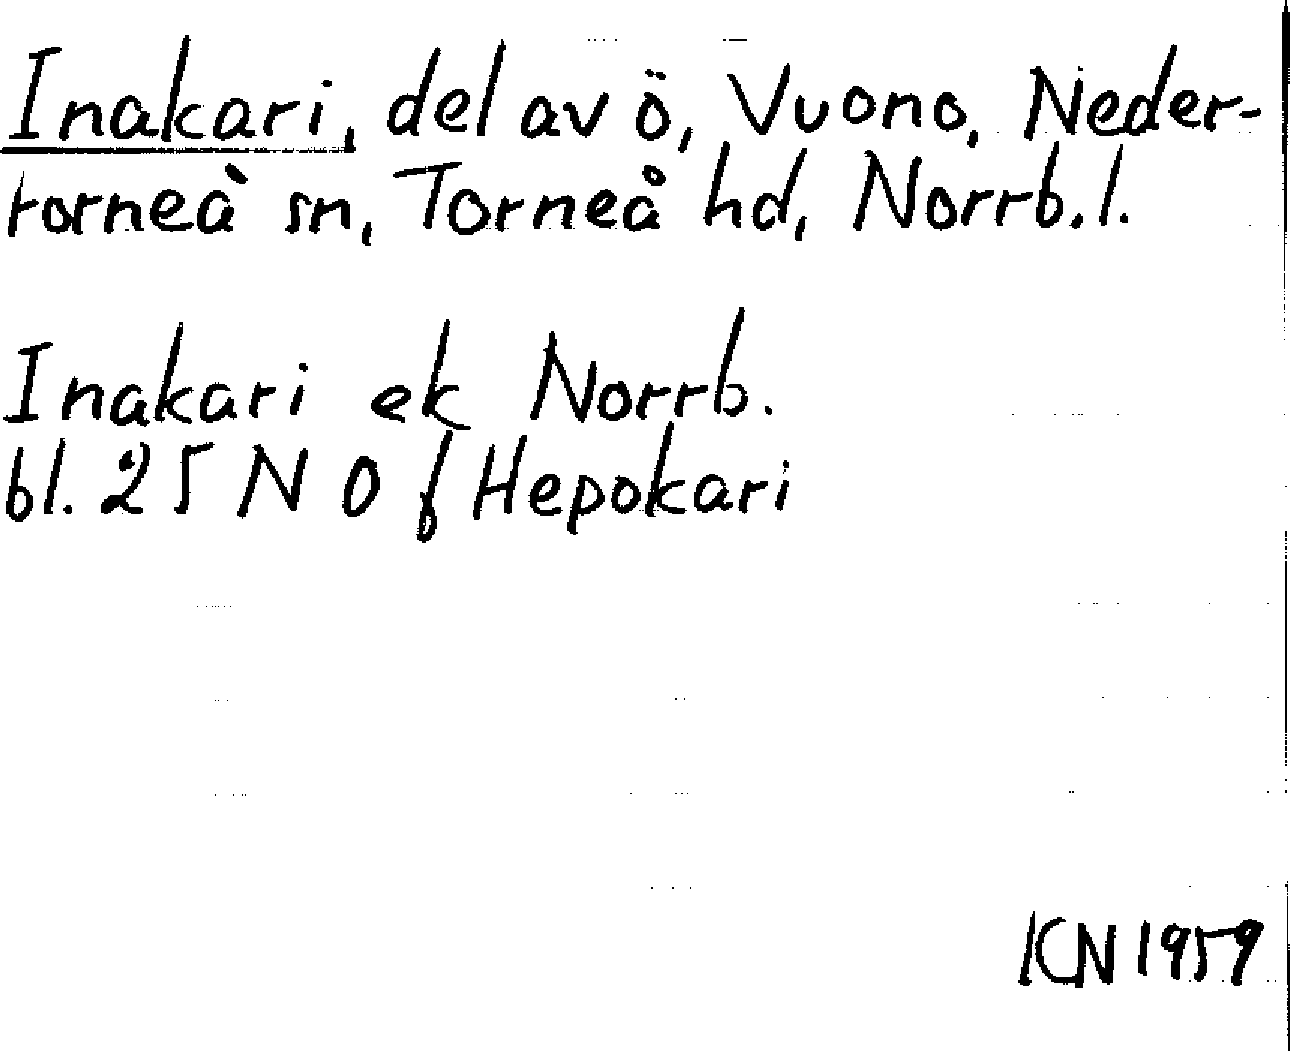 Inakari, del av ö, Vuono, Neder-
torneå sn, Torneå hd, Norrb. l.
Inakari ek Norrb.
bl. 25 N O f Hepokari
KN 1959